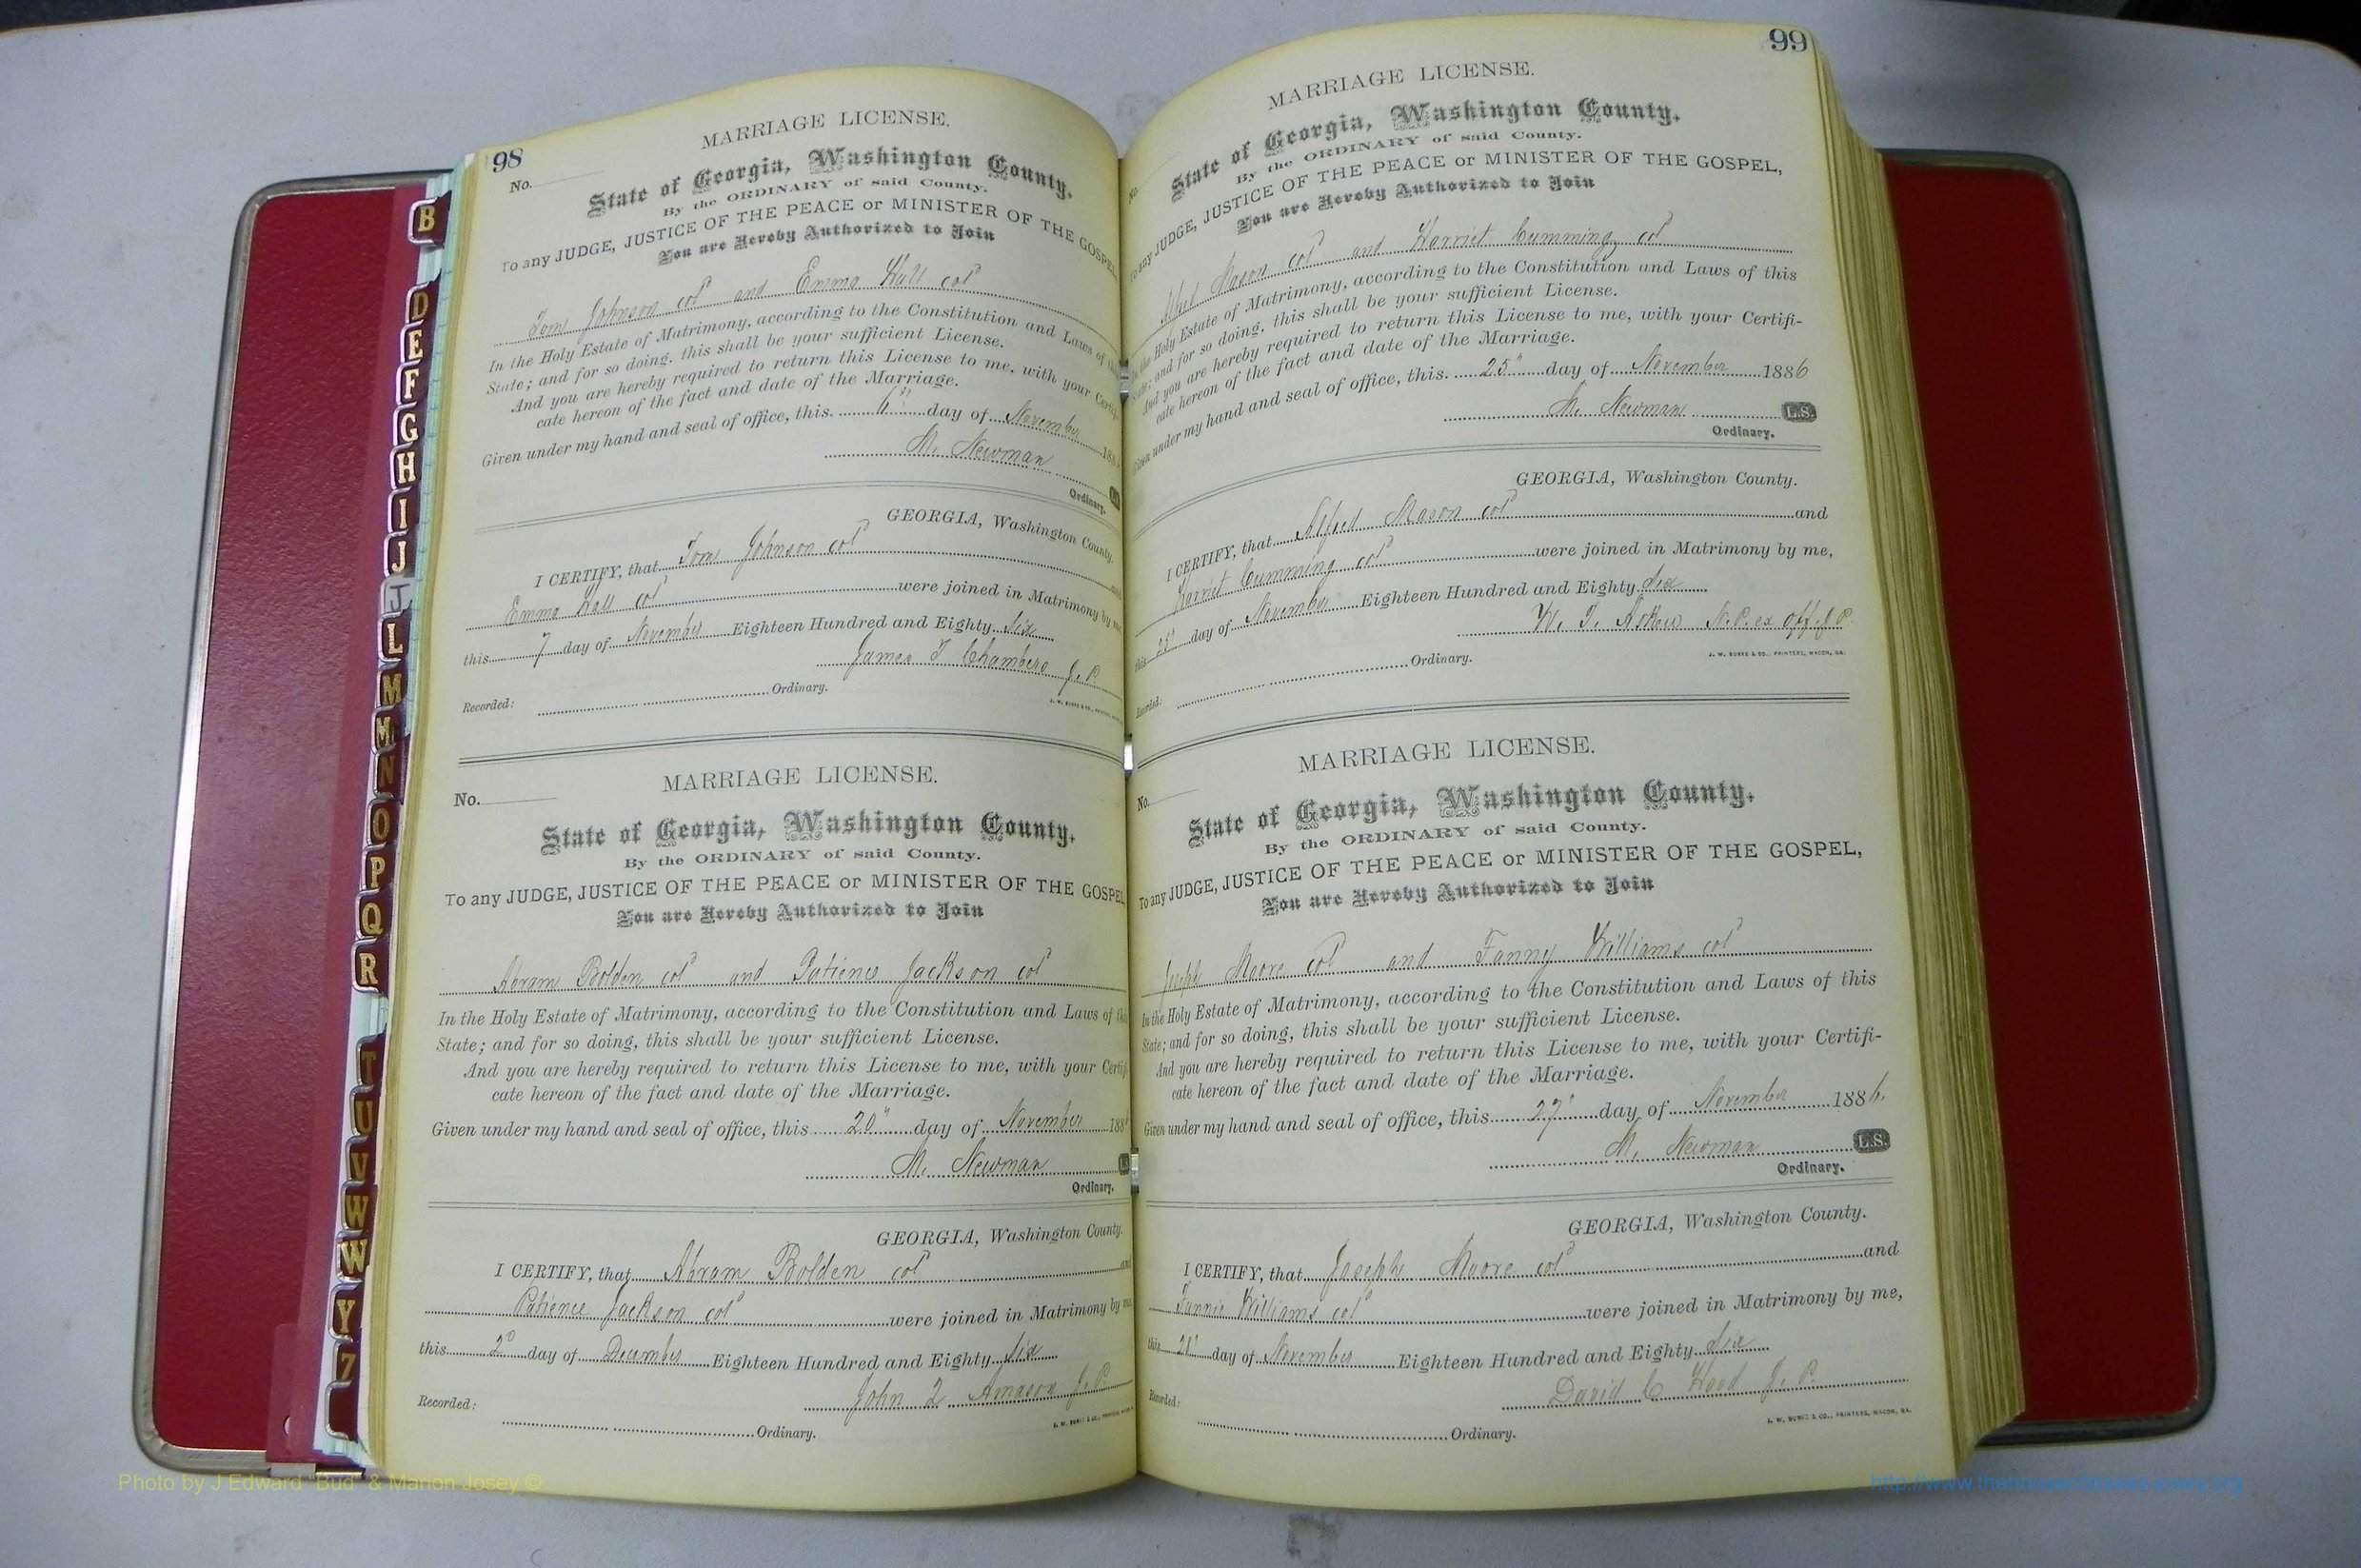 98
MARRIAGE LICENSE.
No.
State of Georgia, Washington County.
By the ORDINARY of said County.
To any JUDGE, JUSTICE OF THE PEACE or MINISTER OF THE GOSPEL
You are Hereby Authorized to Join
Tom Johnson col and Emma Hall col
In the Holy Estate of Matrimony, according to the Constitution and Laws of
State; and for so doing, this shall be your sufficient License.
And you are hereby required to return this License to me, with your Certifi-
cate hereon of the fact and date of the Marriage.
Given under my hand and seal of office, this 6" day of November 188
M. Newman
Ordinary.
GEORGIA, Washington County.
I CERTIFY, that Tom Johnson col and
Emma Hall col were joined in Matrimony by me
this 7 day of November Eighteen Hundred and Eighty Six
James T Chambers J.P.
Recorded: Ordinary.
J. W. BURKE & CO., PRINTERS, MACON
MARRIAGE LICENSE.
No.
State of Georgia, Washington County.
By the ORDINARY of said County.
To any JUDGE, JUSTICE OF THE PEACE or MINISTER OF THE GOSPEL
You are Hereby Authorized to Join
Abram Bolden col and Patience Jackson col
In the Holy Estate of Matrimony, according to the Constitution and Laws of this
State; and for so doing, this shall be your sufficient License.
And you are hereby required to return this License to me, with your Certifi
cate hereon of the fact and date of the Marriage.
Given under my hand and seal of office, this 20" day of November 188
M. Newman
Ordinary.
GEORGIA, Washington County.
I CERTIFY, that Abram Bolden col and
Patience Jackson col were joined in Matrimony by me
this 2d day of December Eighteen Hundred and Eighty Six
John Q Amason J.P.
Recorded: Ordinary.
J. W. BURKE & CO., PRINTERS, MACON
99
MARRIAGE LICENSE.
No.
State of Georgia, Washington County.
By the ORDINARY of said County.
To any JUDGE, JUSTICE OF THE PEACE or MINISTER OF THE GOSPEL,
You are Hereby Authorized to Join
Mason col and Harriet Cumming col
In the Holy Estate of Matrimony, according to the Constitution and Laws of this
State; and for so doing, this shall be your sufficient License.
And you are hereby required to return this License to me, with your Certifi-
cate hereon of the fact and date of the Marriage.
Given under my hand and seal of office, this 25" day of November 1886
M. Newman L.S.
Ordinary.
GEORGIA, Washington County.
I CERTIFY, that Alfred Mason col and
Harriet Cumming col were joined in Matrimony by me,
this 25" day of November Eighteen Hundred and Eighty Six
W. T. Askew N.P. ex off. J.P.
Recorded: Ordinary.
J. W. BURKE & CO., PRINTERS, MACON, GA.
MARRIAGE LICENSE.
No.
State of Georgia, Washington County.
By the ORDINARY of said County.
To any JUDGE, JUSTICE OF THE PEACE or MINISTER OF THE GOSPEL,
You are Hereby Authorized to Join
Joseph Moore col and Fanny Williams col
In the Holy Estate of Matrimony, according to the Constitution and Laws of this
State; and for so doing, this shall be your sufficient License.
And you are hereby required to return this License to me, with your Certifi-
cate hereon of the fact and date of the Marriage.
Given under my hand and seal of office, this 27" day of November 1886.
M. Newman L.S.
Ordinary.
GEORGIA, Washington County.
I CERTIFY, that Joseph Moore col and
Fannie Williams col were joined in Matrimony by me,
this day of November Eighteen Hundred and Eighty Six
David C Hood J.P.
Recorded: Ordinary.
J. W. BURKE & CO., PRINTERS, MACON, GA.
B
D
E
F
G
H
I
J
J
L
M
M
N
O
P
Q
R
T
U
V
W
W
Y
Z
Photo by J Edward "Bud" & Marion Josey ©